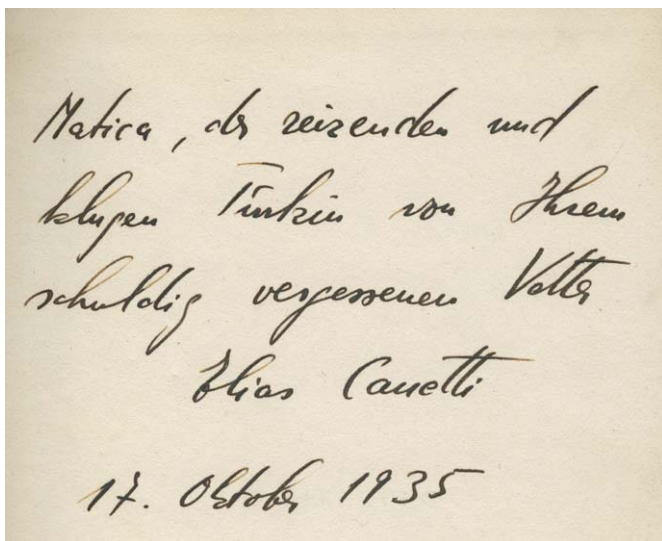 Matica, der reizenden und
klugen Türkin von Ihrem
schuldig vergessenen Vetter
Elias Canetti
17. Oktober 1935